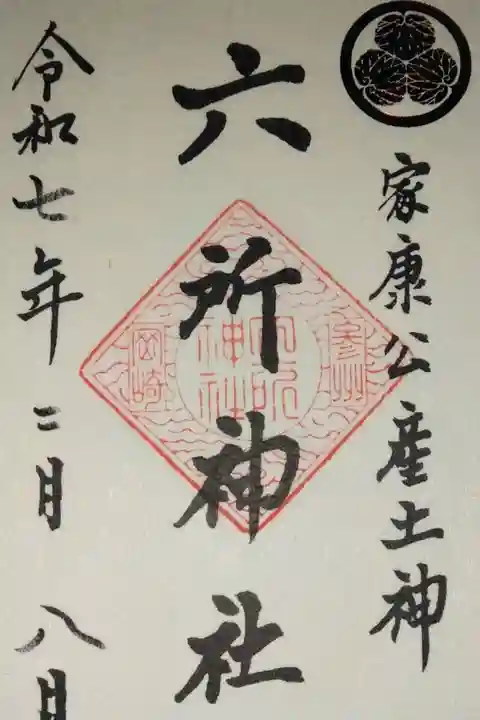 家康公産土神
六所神社
参州
六所
神社
岡崎
令和七年二月八日